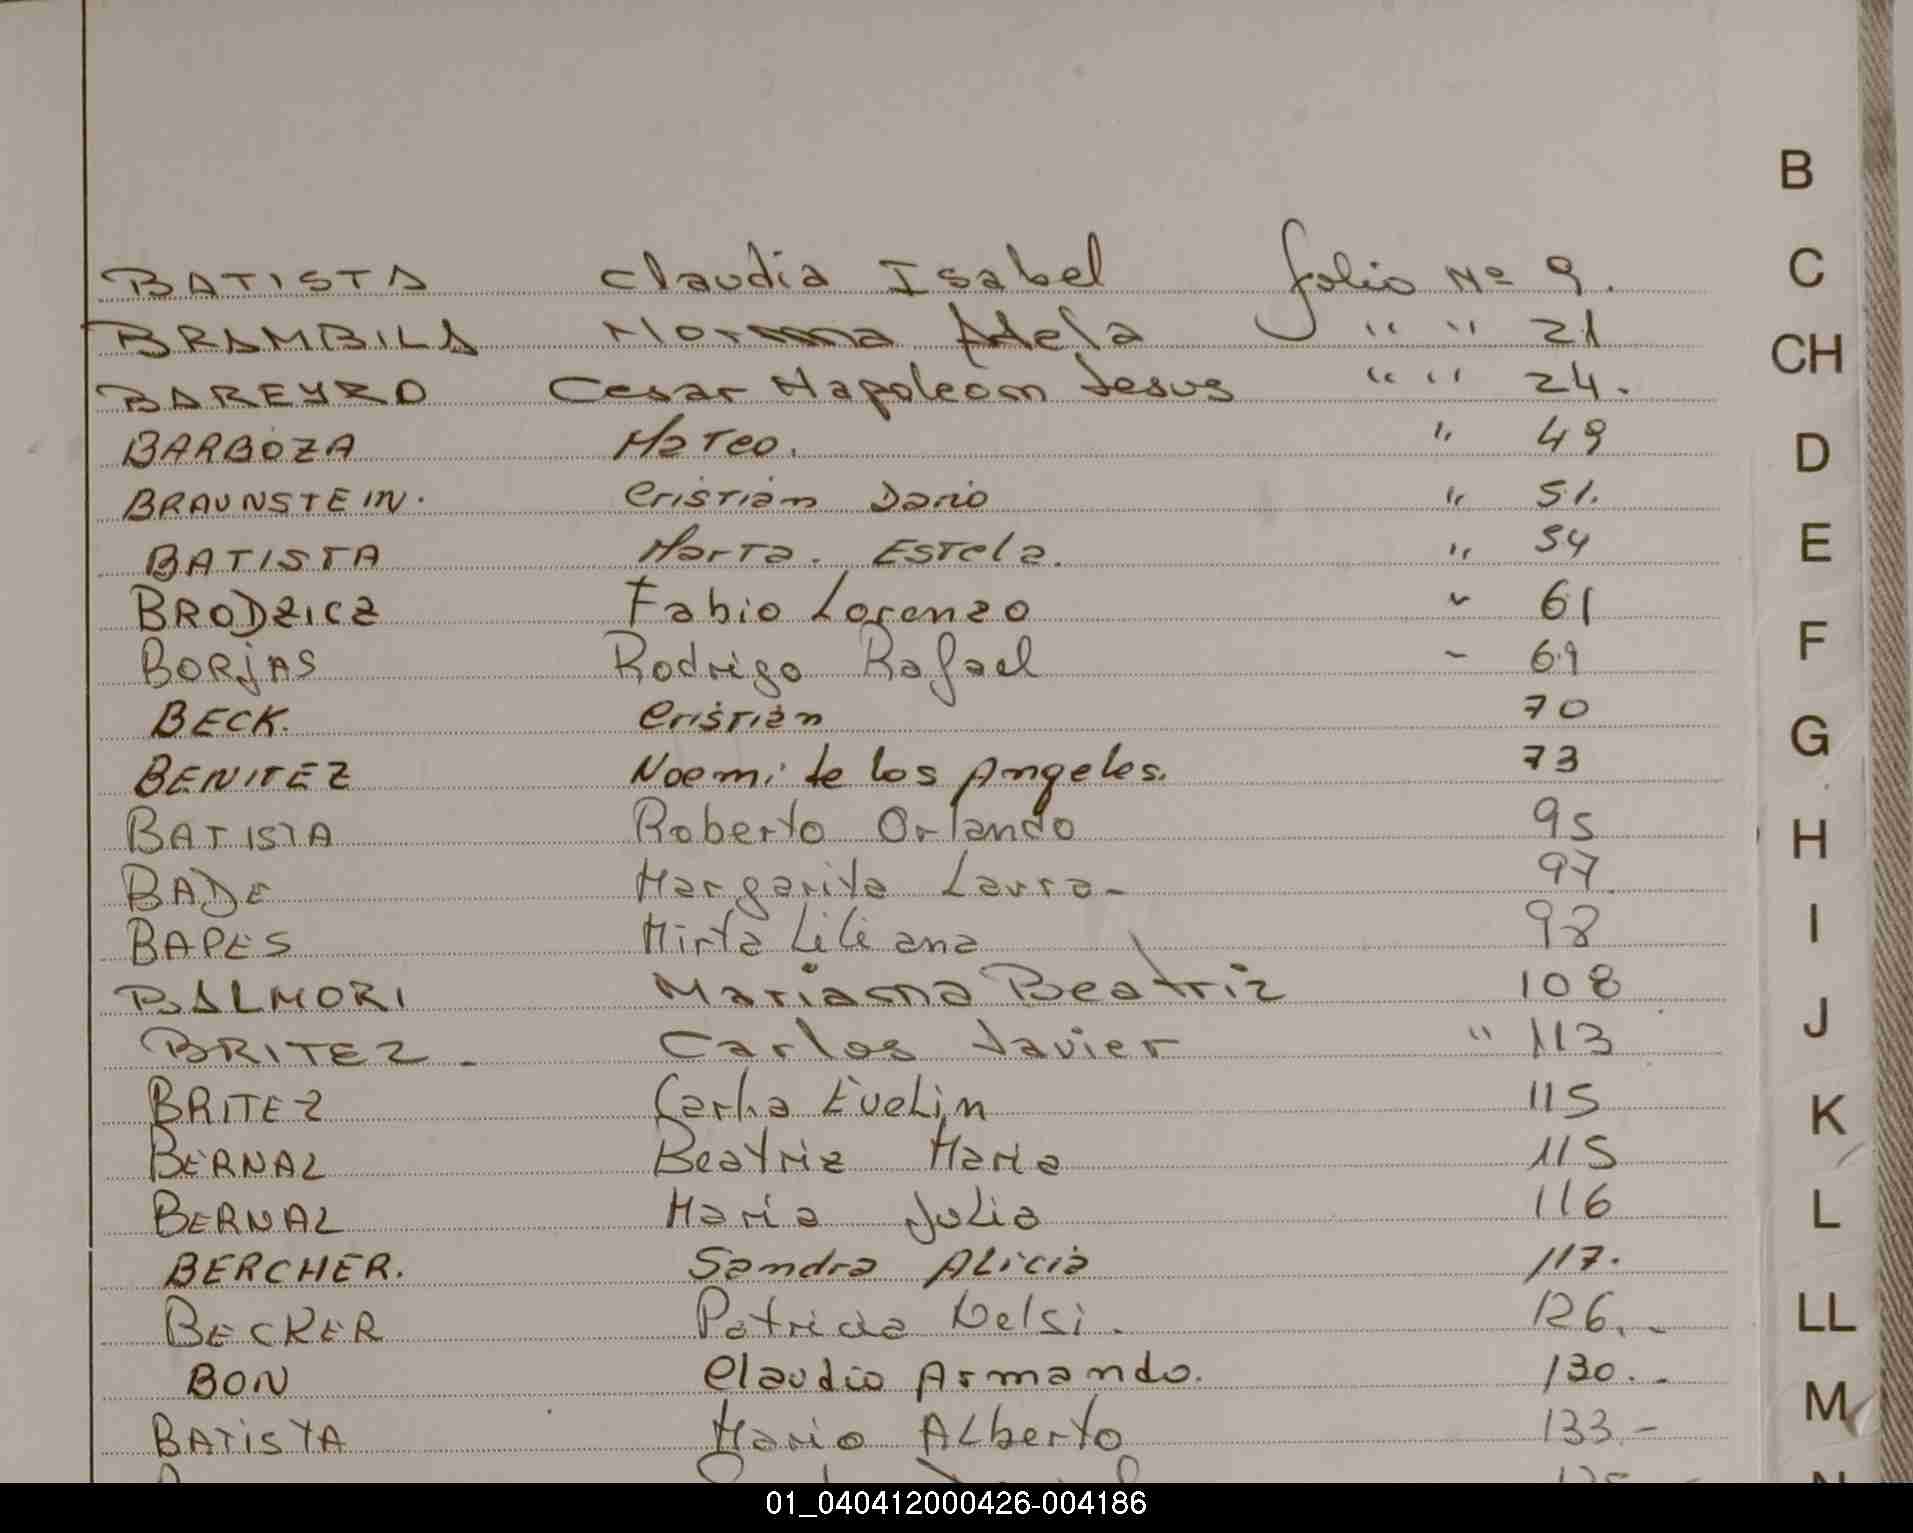 B
BATISTA Claudia Isabel folio Nº 9.
C
BRAMBILA Norma Adela " " 21
CH
BAREYRO Cesar Napoleon Jesus " " 24.
BARBOZA Mateo. " 49
D
BRAUNSTEIN. Cristian Dario " 51.
BATISTA Marta. Estela. " 54
E
BRODZICZ Fabio Lorenzo " 61
BORJAS Rodrigo Rafael " 69
F
BECK. Cristian 70
G
BENITEZ Noemi de los Angeles. 73
BATISTA Roberto Orlando 95
H
BADE Margarita Laura- 97
BAPES Mirta Liliana 98
I
BALMORI Mariana Beatriz 108
J
BRITEZ - Carlos Javier " 113
BRITEZ Evelin 115
K
BERNAL Beatriz Maria 115
BERNAL Maria Julia 116
L
BERCHER. Sandra Alicia 117.
BECKER Patricia Nelsi. 126.-
LL
BON Claudio Armando. 130.-
M
BATISTA Mario Alberto 133.-
01_040412000426-004186